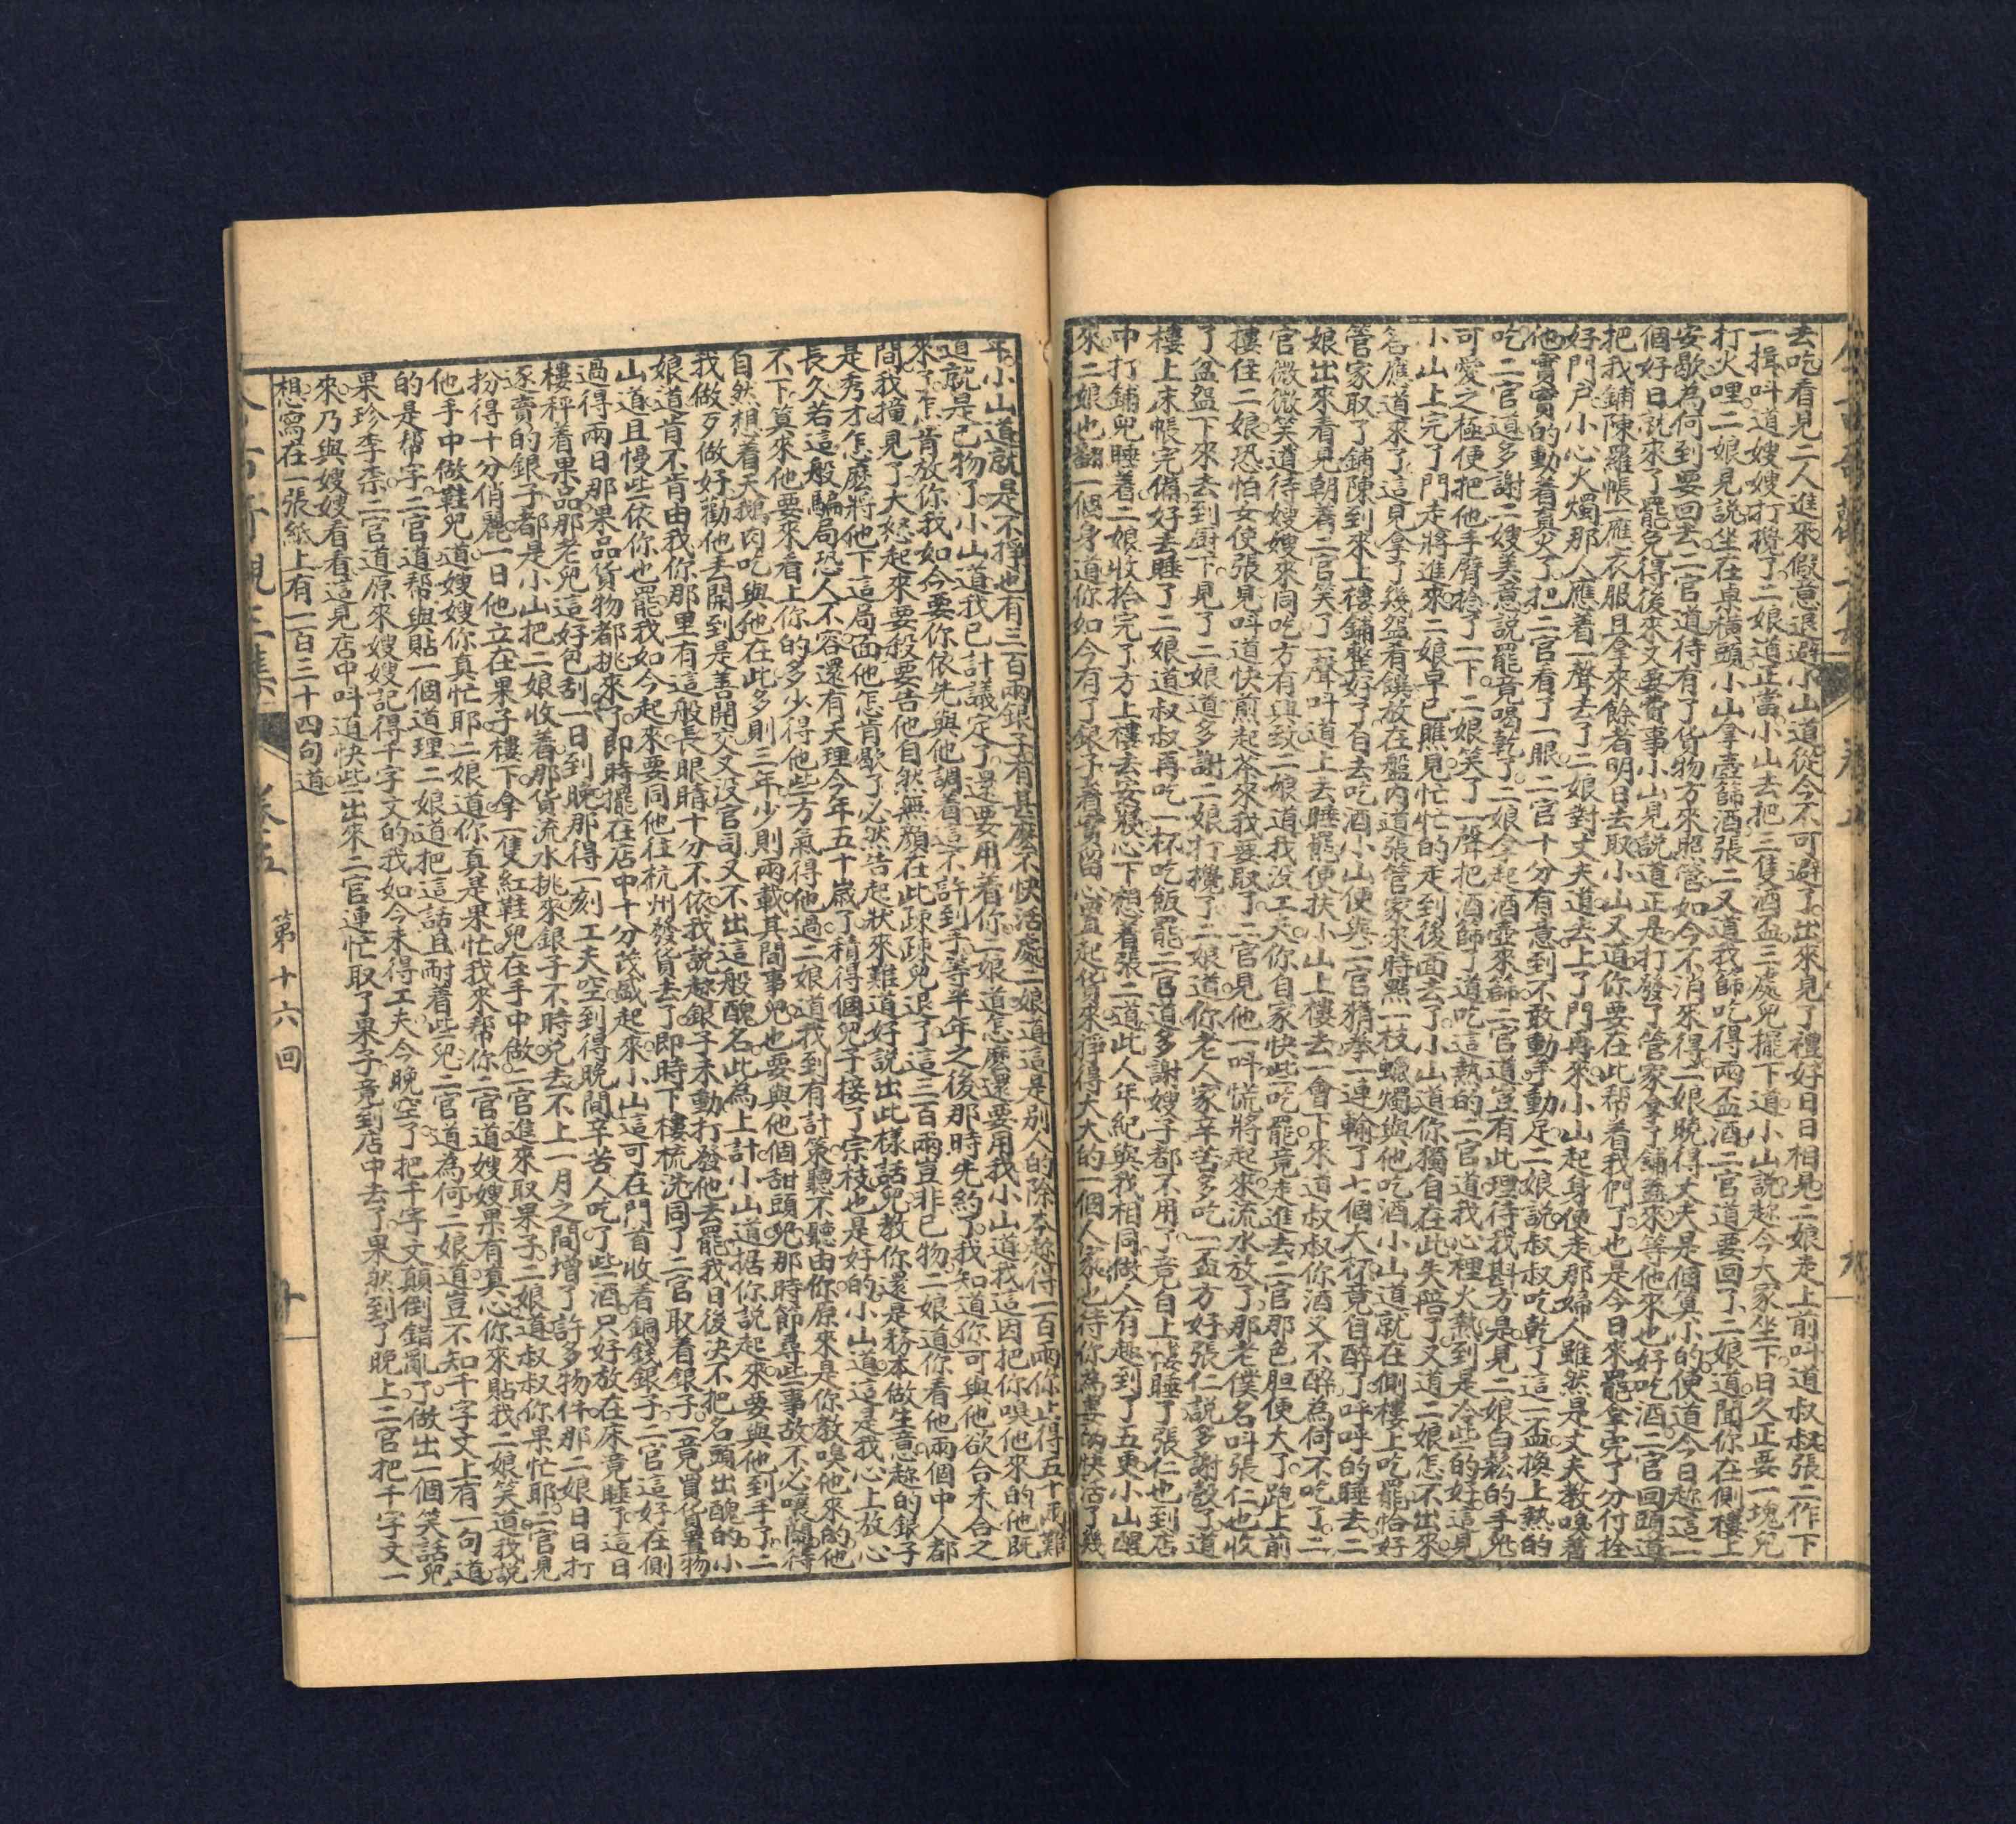 去吃看見二人進來假意退避小山道從今不可避了出來見了禮好日日相見二娘走上前叫道叔叔張二作下
一揖叫道嫂嫂打攪了二娘道正當小山去把三隻酒盃三處兒擺下道小山說趂今大家坐下日久正要一塊兒
打火哩二娘見說坐在桌橫頭小山拿壺篩酒張二又道我篩吃得兩盃酒二官道要回了二娘道聞你在側樓上
安歇為何到要回去二官道待有了貨物方來照管如今不消來得二娘曉得丈夫是個算小的便道今日趂這一
個好日訖來了罷免得後來又要費事小山見說道正是打發了管家拿了鋪蓋來等他來也好吃酒二官回頭道
把我鋪陳羅帳一應衣服且拿來餘者明日去取小山又道你要在此帮着我們了也是今日來罷拿完了分付拴
好門戶小心火燭那人應着一聲去了二娘對丈夫道去上了門再來小山起身便走那婦人雖然是丈夫教嗅着
他實實的動着真火了把二官看了一眼二官十分有意到不敢動手動足二娘說叔叔吃乾了這一盃換上熱的
吃二官道多謝二嫂美意說罷竟喝乾了二娘拿起酒壺來篩二官道豈有此理待我斟方是見二娘白鬆的手兒
可愛之極便把他手臂捻了一下二娘笑了一聲把酒篩了道吃這熱的二官道我心裡火熱到是冷些的好這見
小山上完了門走將進來二娘早已瞧見忙忙的走到後面去了小山道你獨自在此失陪了又道二娘怎不出來
答應道來了這見拿了幾盌肴饌放在盤內道張管家來時點一枝蠟燭與他吃酒小山道就在側樓上吃罷恰好
管家取了鋪陳到來上樓鋪整好了自去吃酒小山便與二官猜拳一連輸了七個大杯竟自醉了呼呼的睡去二
娘出來看見朝着二官笑了一聲叫道上去睡罷便扶小山上樓去一會下來道叔叔你酒又不醉為何不吃了二
官微微笑道待嫂嫂來同吃方有興致二娘道我沒工夫你自家快些吃罷竟走進去二官那色胆便大了跑上前
摟住二娘恐怕女使張見叫道快煎起茶來我要取了二官見他一叫慌將起來流水放了那老僕名叫張仁也收
了盆盌下來去到廚下見了二娘道多謝二娘打攪了二娘道你老人家辛苦多吃一盃方好張仁說多謝彀了道
樓上床帳完備好去睡了二娘道叔叔再吃一杯吃飯罷二官道多謝嫂子都不用了竟自上樓睡了張仁也到店
中打鋪兒睡着二娘收拾完了方上樓去安寢心下想着張二道此人年紀與我相同做人有趣到了五更小山醒
來二娘也翻一個身道你如今有了銀子着實留心置起貨來掙得大大的一個人家也待你為妻的快活了幾
年小山道就是不掙也有三百兩銀子有甚麼不快活處二娘道這是別人的除本趂得一百兩你止得五十兩難
道就是己物了小山道我已計議定了還要用着你二娘道怎麼還要用我小山道我這因把你嗅他來的他既
來了怎肯放你我如今要你依先與他調着這不許到手等半年之後那時先約了我知道你可與他欲合未合之
間我撞見了大怒起來要殺要告他自然無顏在此疎疎兒退了這三百兩豈非已物二娘道你看他兩個中人都
是秀才怎麼將他下這局面他怎肯歇了必然告起狀來難道好說出此樣話兒教你還是務本做生意趂的銀子
長久若這般騙局恐人不容還有天理今年五十歲了積得個兒子接了宗枝也是好的小山道這是我心上放心
不下算來他要來看上你的多多少得他些方氣得他過二娘道我到有計策聽不聽由你原來是你教嗅他來的他
自然想着天鵝肉吃與他在此多則三年少則兩載其間事兒也要與他個甜頭兒那時節尋些事故不必嚷鬧待
我做歹做好勸他丟開到是善開交又沒官司又不出這般醜名此為上計小山道據你說起來要與他到手了二
娘道肯不肯由我你那里有這般長眼睛十分不依我說趂銀子未動打發他去罷我日後決不把名頭出醜的小
山道且慢些依你也罷我如今起來要同他往杭州發貨去了即時下樓梳洗同了二官取着銀子一竟買貨置物
過得兩日那果品貨物都挑來了即時擺在店中十分茂盛起來小山這可在門首收着銅錢銀子二官這好在側
樓秤着果品那老兒這好包刮一日到晚那得一刻工夫空到得晚間辛苦人吃了些酒只好放在床竟睡了這日
逐賣的銀子都是小山把二娘收着那貨流水挑來銀子不時兌去不上一月之間增了許多物件那二娘日日打
扮得十分俏麗一日他立在果子樓下拿一隻紅鞋兒在手中做二官進來取果子二娘道叔叔你果忙耶二官見
他手中做鞋兒道嫂嫂你真忙耶二娘道你真是果忙我來帮你二官道嫂嫂果有真心你來貼我二娘笑道我說
的是帮字二官道帮與貼一個道理二娘道把這話且耐着些兒二官道為何二娘道豈不知千字文上有一句道
果珍李柰二官道原來嫂嫂記得千字文的我如今未得工夫今晚空了把千字文顛倒錯亂了做出一個笑話兒
來乃與嫂嫂看看這見店中叫道快些出來二官連忙取了果子竟到店中去了果然到了晚上二官把千字文一
想寫在一張紙上有一百三十四句道
第十六回